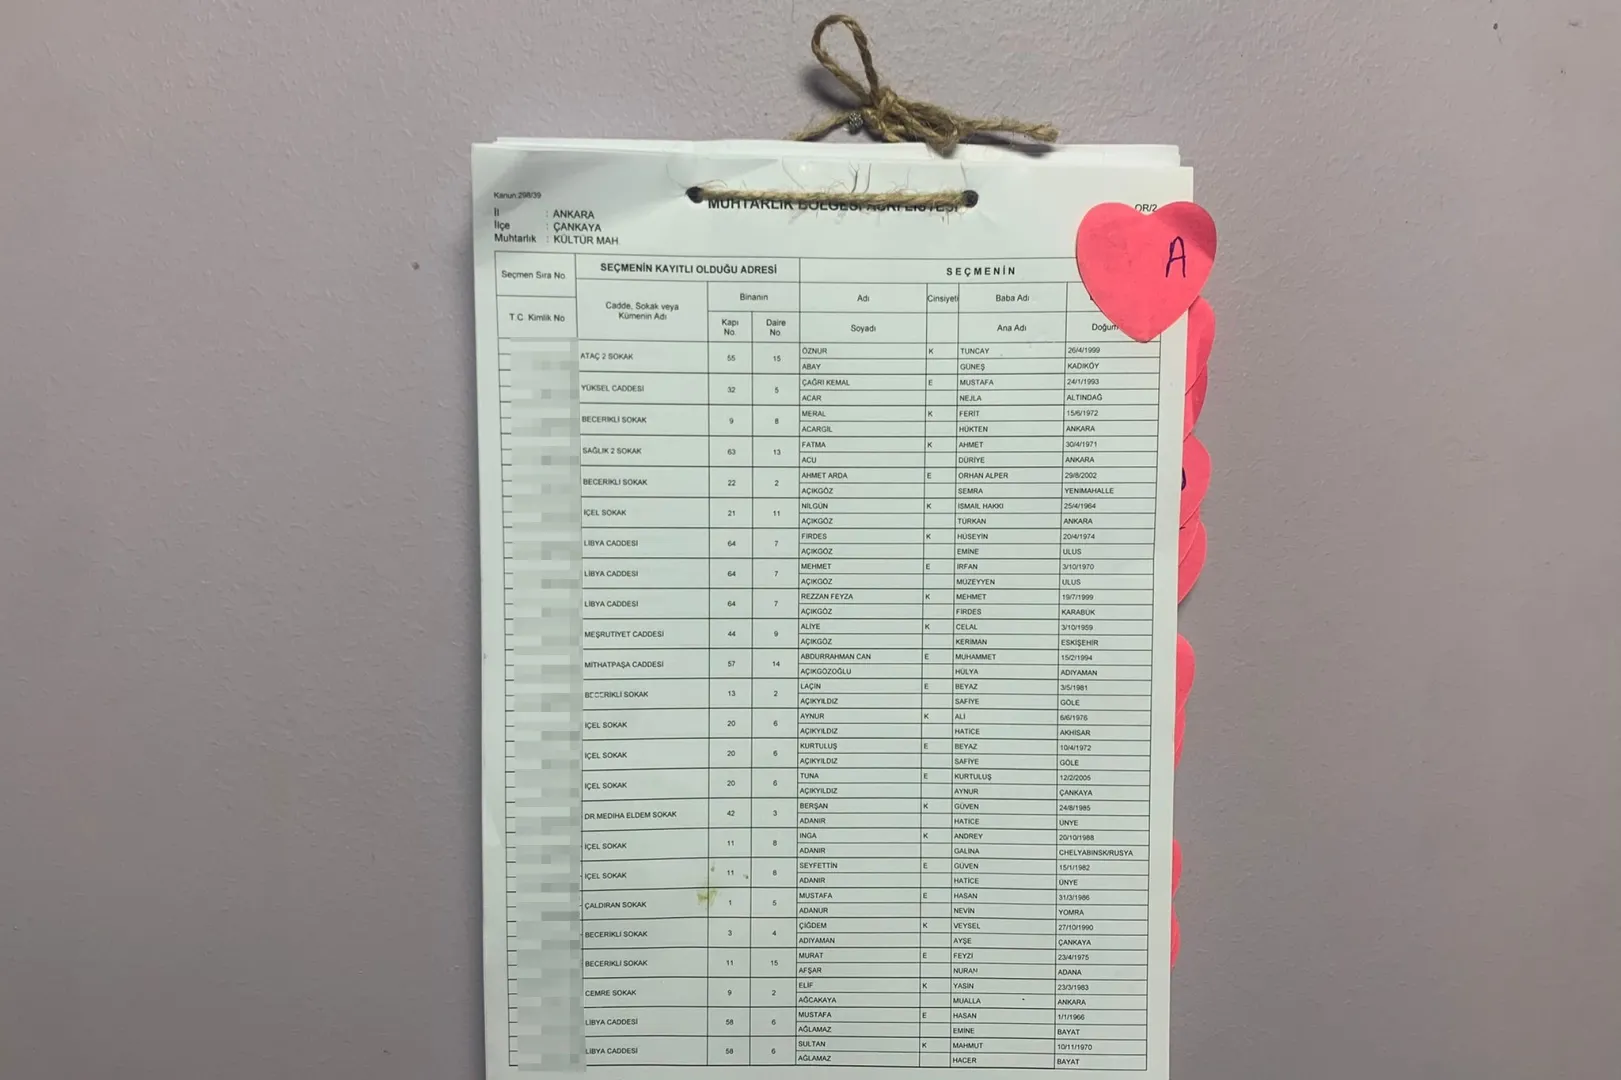 Kanun:298/39
MUHTARLIK BÖLGESİ ASKI LİSTESİ
ÖR/2
İl : ANKARA
İlçe : ÇANKAYA
Muhtarlık : KÜLTÜR MAH.
A
Seçmen Sıra No. SEÇMENİN KAYITLI OLDUĞU ADRESİ SEÇMENİN
T.C. Kimlik No Cadde, Sokak veya Kümenin Adı Binanın Adı Cinsiyeti Baba Adı
Kapı No. Daire No. Soyadı Ana Adı Doğum
ATAÇ 2 SOKAK 55 15 ÖZNUR K TUNCAY 26/4/1999
ABAY GÜNEŞ KADIKÖY
YÜKSEL CADDESİ 32 5 ÇAĞRI KEMAL E MUSTAFA 24/1/1993
ACAR NEJLA ALTINDAĞ
BECERİKLİ SOKAK 9 8 MERAL K FERİT 15/6/1972
ACARGİL HÜKTEN ANKARA
SAĞLIK 2 SOKAK 63 13 FATMA K AHMET 30/4/1971
ACU DÜRİYE ANKARA
BECERİKLİ SOKAK 22 2 AHMET ARDA E ORHAN ALPER 29/8/2002
AÇIKGÖZ SEMRA YENİMAHALLE
İÇEL SOKAK 21 11 NİLGÜN K İSMAİL HAKKI 25/4/1964
AÇIKGÖZ TÜRKAN ANKARA
LİBYA CADDESİ 64 7 FİRDES K HÜSEYİN 20/4/1974
AÇIKGÖZ EMİNE ULUS
LİBYA CADDESİ 64 7 MEHMET E İRFAN 3/10/1970
AÇIKGÖZ MÜZEYYEN ULUS
LİBYA CADDESİ 64 7 REZZAN FEYZA K MEHMET 19/7/1999
AÇIKGÖZ FİRDES KARABÜK
MEŞRUTİYET CADDESİ 44 9 ALİYE K CELAL 3/10/1959
AÇIKGÖZ KERİMAN ESKİŞEHİR
MİTHATPAŞA CADDESİ 57 14 ABDURRAHMAN CAN E MUHAMMET 15/2/1994
AÇIKGÖZOĞLU HÜLYA ADIYAMAN
BECERİKLİ SOKAK 13 2 LAÇİN E BEYAZ 3/5/1981
AÇIKYILDIZ SAFİYE GÖLE
İÇEL SOKAK 20 6 AYNUR K ALİ 6/6/1976
AÇIKYILDIZ HATİCE AKHİSAR
İÇEL SOKAK 20 6 KURTULUŞ E BEYAZ 10/4/1972
AÇIKYILDIZ SAFİYE GÖLE
İÇEL SOKAK 20 6 TUNA E KURTULUŞ 12/2/2005
AÇIKYILDIZ AYNUR ÇANKAYA
DR.MEDİHA ELDEM SOKAK 42 3 BERŞAN K GÜVEN 24/8/1985
ADANIR HATİCE ÜNYE
İÇEL SOKAK 11 8 INGA K ANDREY 20/10/1988
ADANIR GALINA CHELYABINSK/RUSYA
İÇEL SOKAK 11 8 SEYFETTİN E GÜVEN 15/1/1982
ADANIR HATİCE ÜNYE
ÇALDIRAN SOKAK 1 5 MUSTAFA E HASAN 31/3/1986
ADANUR NEVİN YOMRA
BECERİKLİ SOKAK 3 4 ÇİĞDEM K VEYSEL 27/10/1990
ADIYAMAN AYŞE ÇANKAYA
BECERİKLİ SOKAK 11 15 MURAT E FEYZİ 23/4/1975
AFŞAR NURAN ADANA
CEMRE SOKAK 9 2 ELİF K YASİN 23/3/1983
AĞCAKAYA MUALLA ANKARA
LİBYA CADDESİ 58 6 MUSTAFA E HASAN 1/1/1966
AĞLAMAZ EMİNE BAYAT
LİBYA CADDESİ 58 6 SULTAN K MAHMUT 10/11/1970
AĞLAMAZ HACER BAYAT